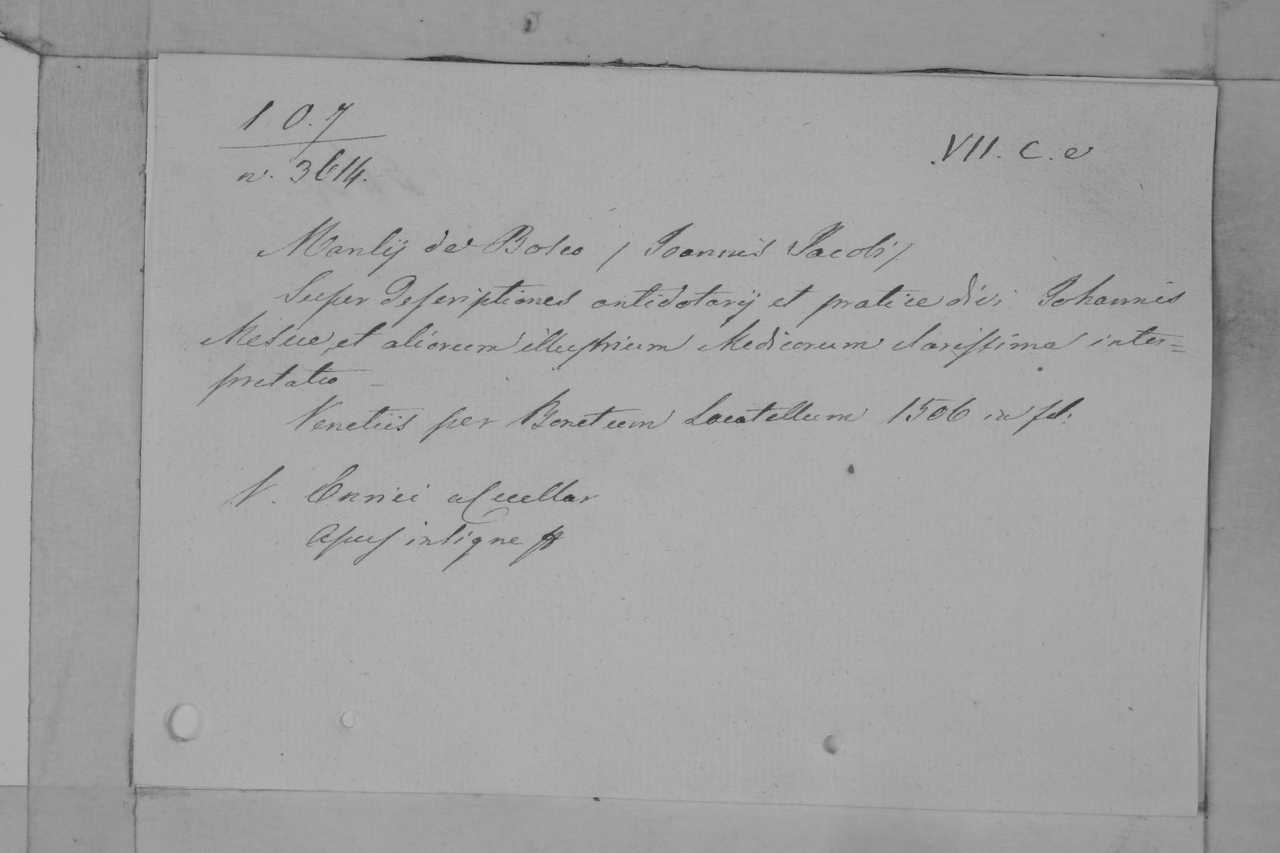 1 0. 7
n. 3614.
VII. C. e
Manlij de Bosco / Joannis Jacobi /
Super Descriptiones antidotarij et pratice divi Johannis
Mesue, et aliorum illustrium Medicorum clarissima inter=
pretatio
Venetiis per Bonetum Locatellum 1506 in fol.
V. Enrici a Cuellar
apus insigne